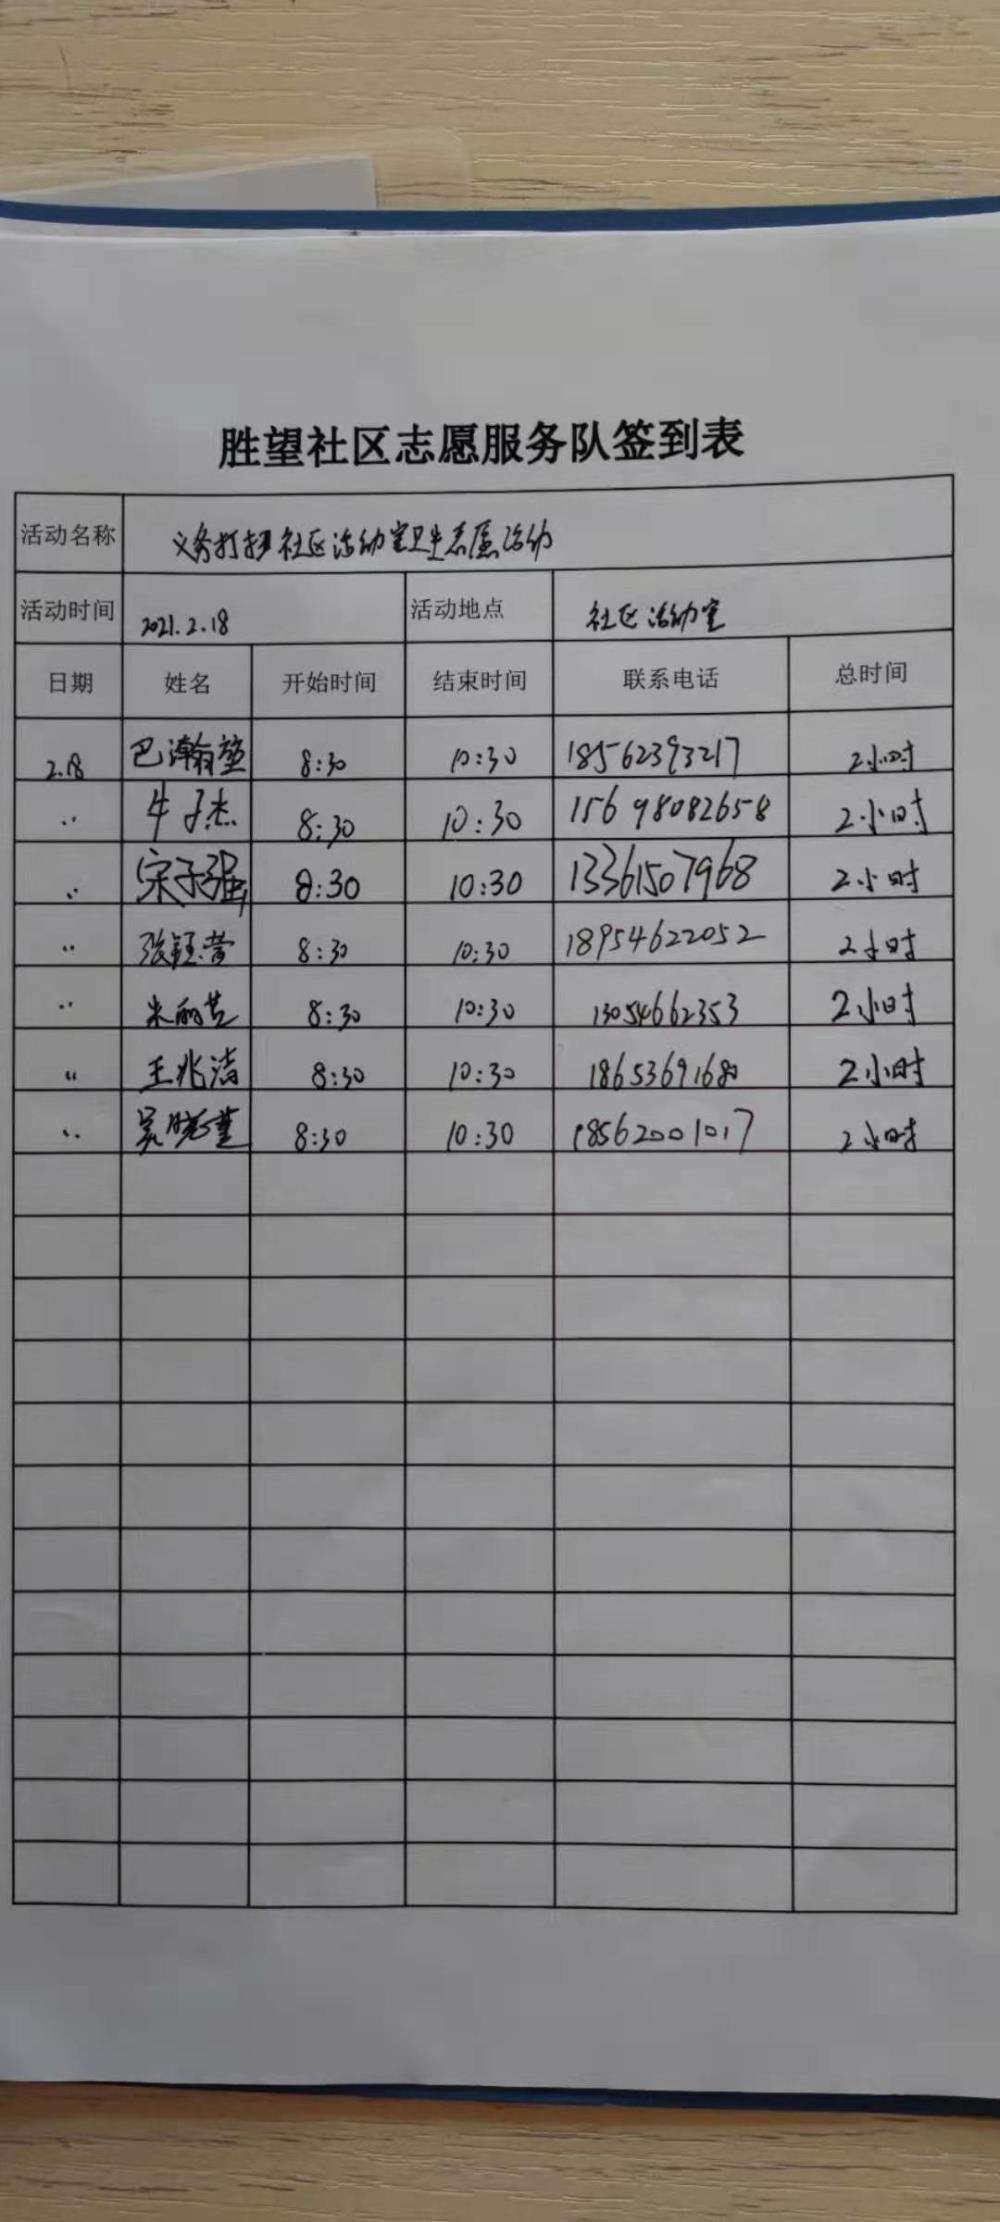 胜望社区志愿服务队签到表
活动名称 义务打扫社区活动室卫生志愿活动
活动时间 2021.2.18 活动地点 社区活动室
日期 姓名 开始时间 结束时间 联系电话 总时间
2.18 巴瀚堃 8:30 10:30 18562393217 2小时
〃 牛子杰 8:30 10:30 15698082658 2小时
〃 宋子强 8:30 10:30 13361507968 2小时
〃 张钰莹 8:30 10:30 18954622052 2小时
〃 8:30 10:30 13054662353 2小时
〃 王兆洁 8:30 10:30 18653691680 2小时
〃 吴晓莲 8:30 10:30 18562001017 2小时